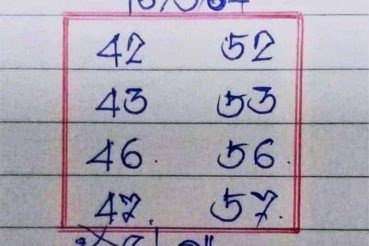 42 52
43 53
46. 56.
47. 57.